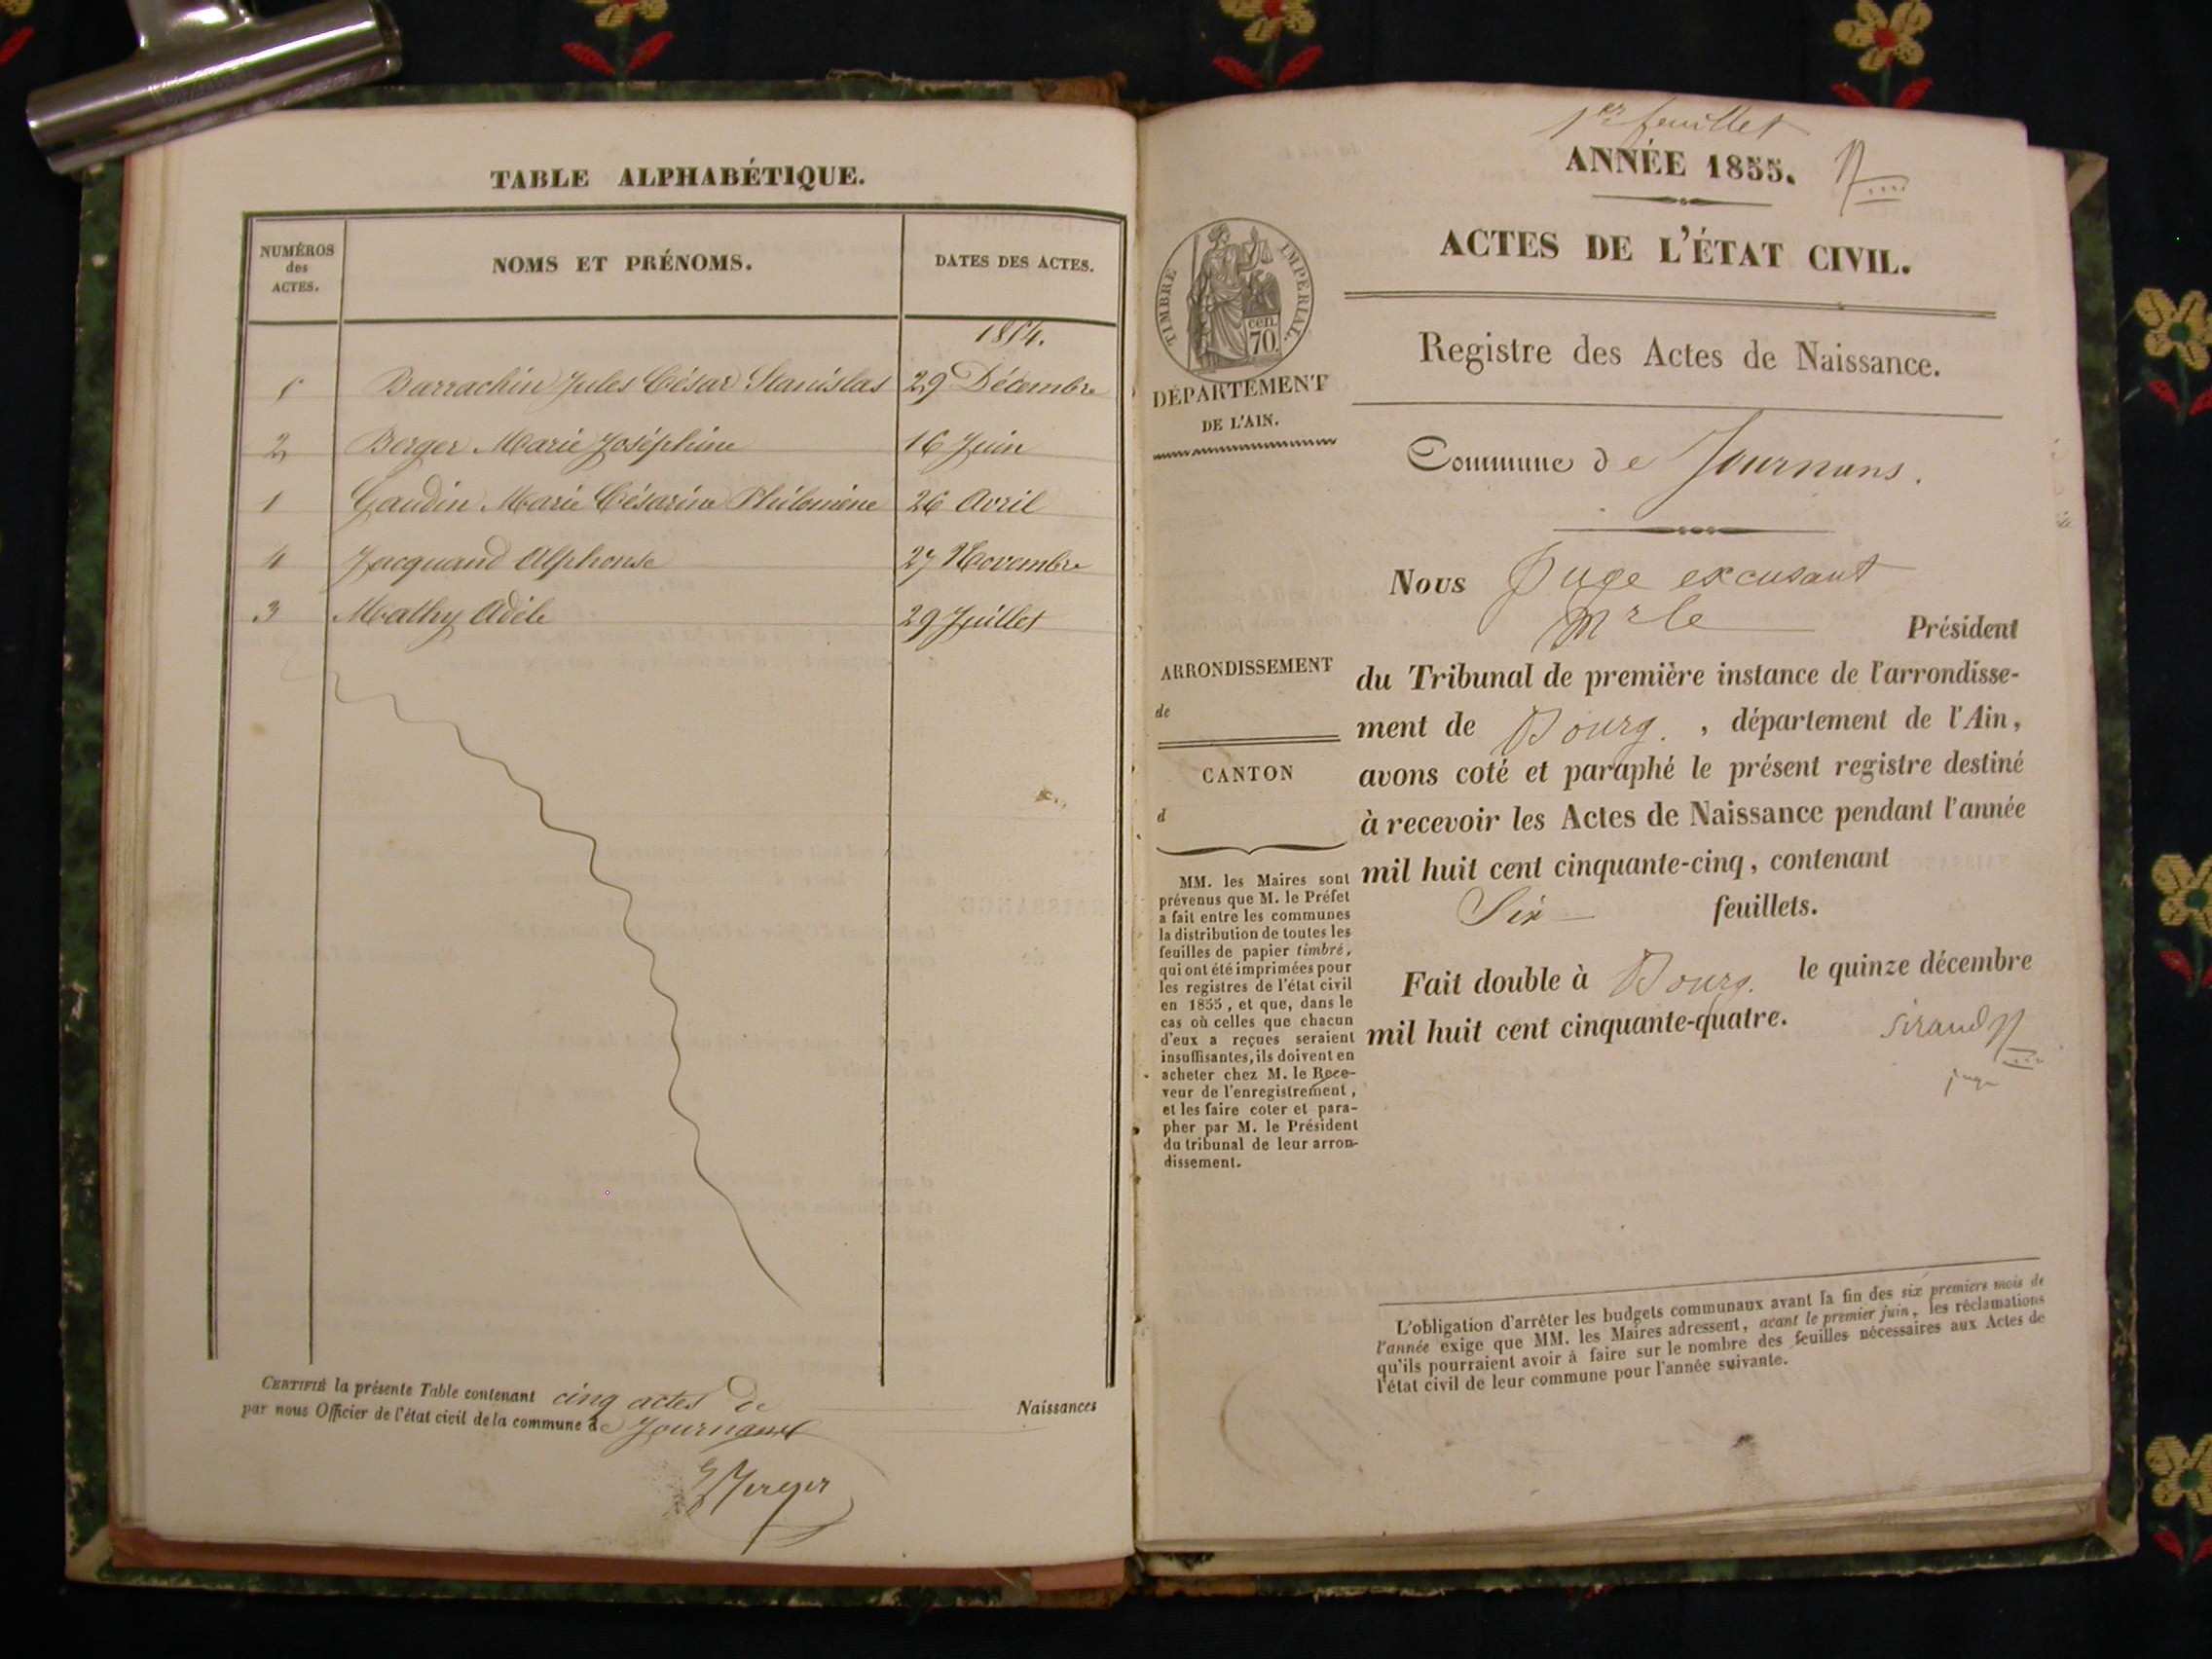 TABLE ALPHABÉTIQUE.
NUMÉROS des ACTES.
NOMS ET PRÉNOMS.
DATES DES ACTES.
1854.
5 Barrachin Jules César Stanislas 29 Décembre
2 Berger Marie Joséphine 16 Juin
1 Gaudin Marie Césarine Philomène 26 Avril
4 Jacquand Alphonse 27 Novembre
3 Mathy Adèle 29 Juillet
CERTIFIÉ la présente Table contenant cinq actes de Naissances
par nous Officier de l'état civil de la commune de Journans
Berger
1er feuillet
ANNÉE 1855.
ACTES DE L'ÉTAT CIVIL.
TIMBRE IMPERIAL.
cen.
70.
DÉPARTEMENT
DE L'AIN.
Registre des Actes de Naissance.
Commune de Journans.
Nous Juge excusant
Mr le Président
du Tribunal de première instance de l'arrondisse-
ment de Bourg. , département de l'Ain,
avons coté et paraphé le présent registre destiné
à recevoir les Actes de Naissance pendant l'année
mil huit cent cinquante-cinq, contenant
Six feuillets.
Fait double à Bourg. le quinze décembre
mil huit cent cinquante-quatre.
Sirand
juge
ARRONDISSEMENT
de
CANTON
d
MM. les Maires sont
prévenus que M. le Préfet
a fait entre les communes
la distribution de toutes les
feuilles de papier timbré,
qui ont été imprimées pour
les registres de l'état civil
en 1855, et que, dans le
cas où celles que chacun
d'eux a reçues seraient
insuffisantes, ils doivent en
acheter chez M. le Rece-
veur de l'enregistrement,
et les faire coter et para-
pher par M. le Président
du tribunal de leur arron-
dissement.
L'obligation d'arrêter les budgets communaux avant la fin des six premiers mois de
l'année exige que MM. les Maires adressent, avant le premier juin, les réclamations
qu'ils pourraient avoir à faire sur le nombre des feuilles nécessaires aux Actes de
l'état civil de leur commune pour l'année suivante.